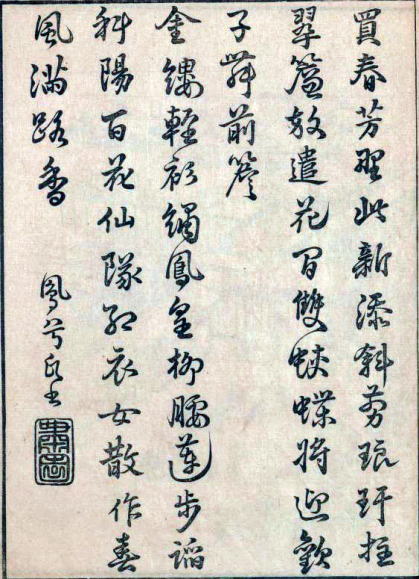 買春芳墅此新添斜剪琅玕挂
翠簾故遣花間雙蛺蝶將迎歡
子舞前簷
金縷輕衫繡鳳皇柳腰蓮步蹈
斜陽百花仙隊衣女散作春
風滿路香 鳳兮